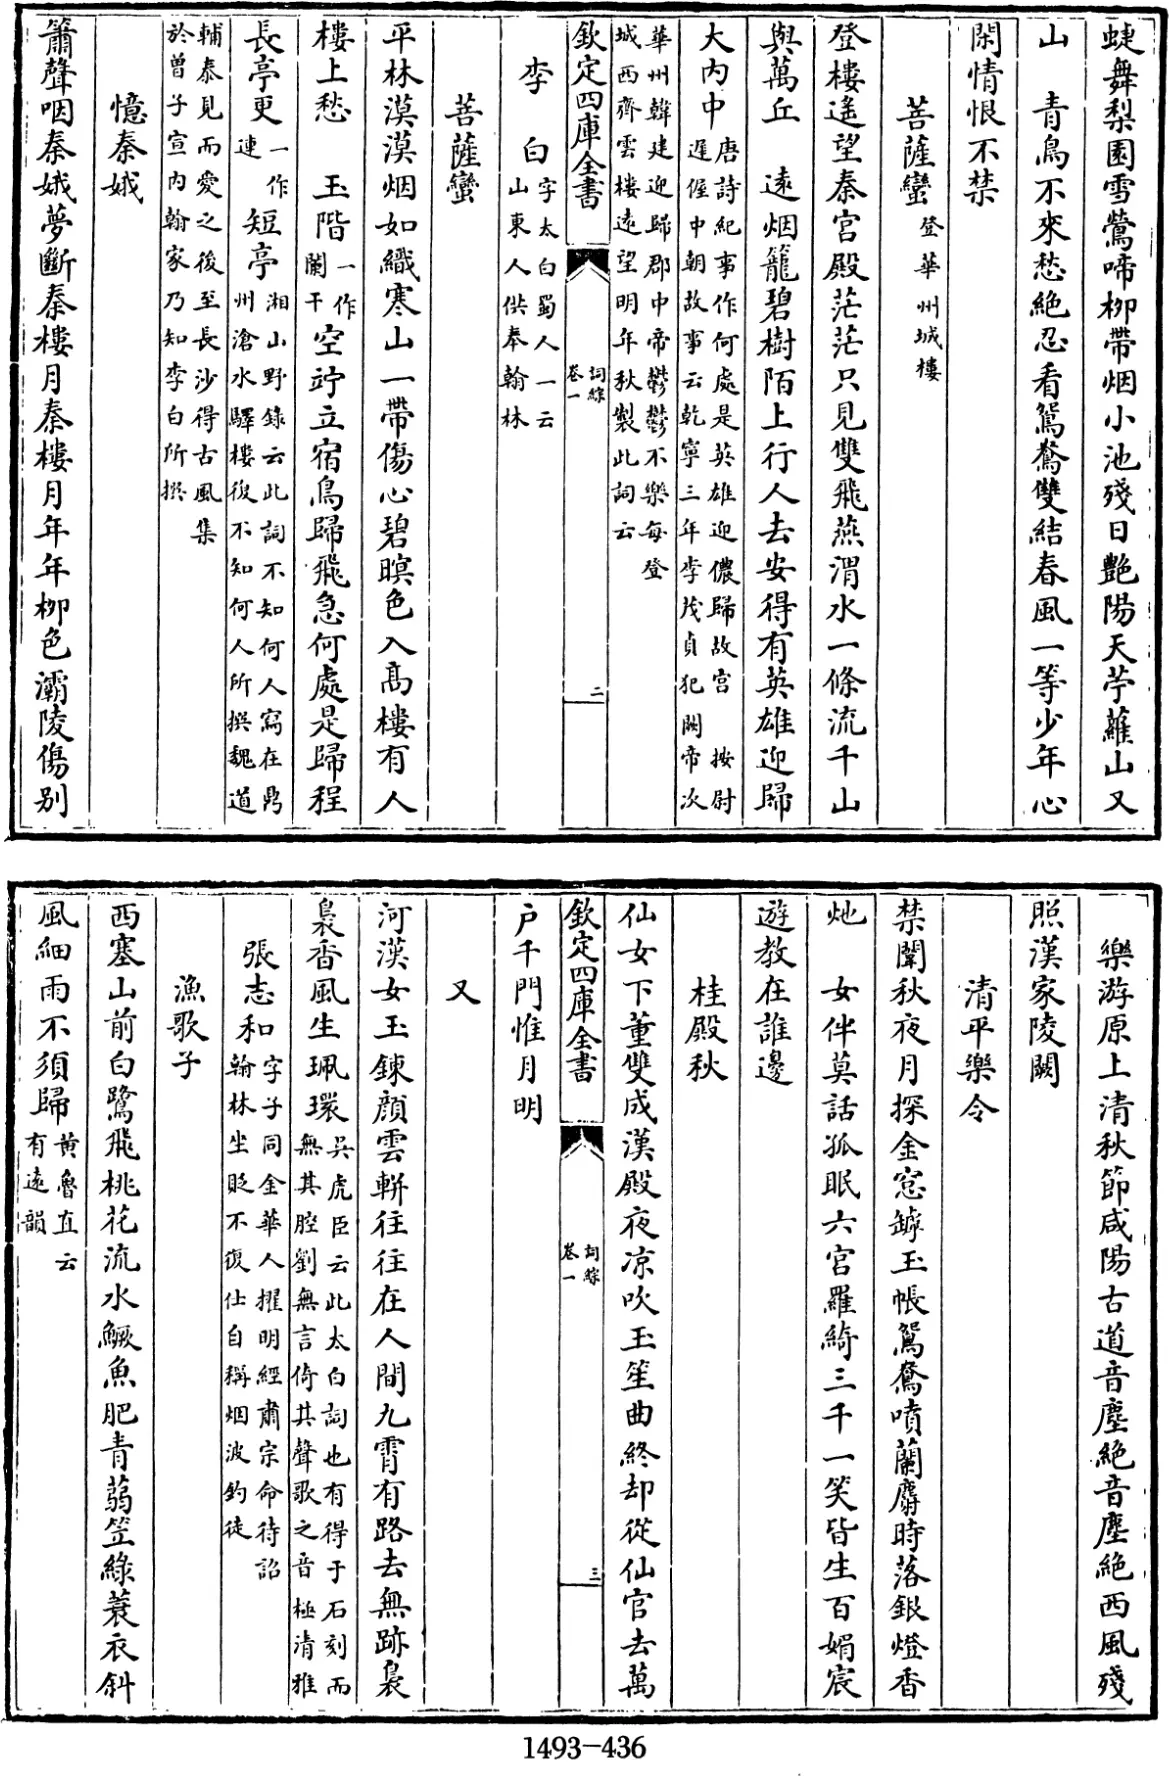 蜨舞梨園雪鶯啼柳帶烟小池殘日艷陽天苧蘿山又
山　青鳥不來愁絕忍看鴛鴦雙結春風一等少年心
閑情恨不禁
菩薩蠻登華州城樓
登樓遙望秦宮殿茫茫只見雙飛燕渭水一條流千山
與萬丘　遠烟籠碧樹陌上行人去安得有英雄迎歸
大內中唐詩紀事作何處是英雄迎儂歸故宮　按尉
遲偓中朝故事云乾寧三年李茂貞犯闕帝次
華州韓建迎歸郡中帝鬱鬱不樂每登
城西齊雲樓遠望明年秋製此詞云
欽定四庫全書
詞綜
卷一
二
李　白字太白蜀人一云
山東人供奉翰林
菩薩蠻
平林漠漠烟如織寒山一帶傷心碧暝色入高樓有人
樓上愁　玉階一作
闌干空竚立宿鳥歸飛急何處是歸程
長亭更一作
連短亭湘山野錄云此詞不知何人寫在鼎
州滄水驛樓復不知何人所撰魏道
輔泰見而愛之後至長沙得古風集
於曾子宣內翰家乃知李白所撰
憶秦娥
簫聲咽秦娥夢斷秦樓月秦樓月年年柳色灞陵傷別
樂游原上清秋節咸陽古道音塵絕音塵絕西風殘
照漢家陵闕
清平樂令
禁闈秋夜月探金窓罅玉帳鴛鴦噴蘭麝時落銀燈香
灺　女伴莫話孤眠六宮羅綺三千一笑皆生百媚宸
遊教在誰邊
桂殿秋
仙女下董雙成漢殿夜凉吹玉笙曲終却從仙官去萬
戶千門惟月明
欽定四庫全書
詞綜
卷一
三
又
河漢女玉鍊顏雲軿往往在人間九霄有路去無跡裊
裊香風生珮環吳虎臣云此太白詞也有得于石刻而
無其腔劉無言倚其聲歌之音極清雅
張志和字子同金華人擢明經肅宗命待詔
翰林坐貶不復仕自稱烟波釣徒
漁歌子
西塞山前白鷺飛桃花流水鱖魚肥青蒻笠綠蓑衣斜
風細雨不須歸黃魯直云
有遠韻
1493—436